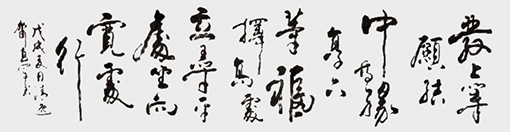 發上等
願結
中等緣
享下
等福
擇高處
立尋平
處坐向
寬處
行
戊戌夏月